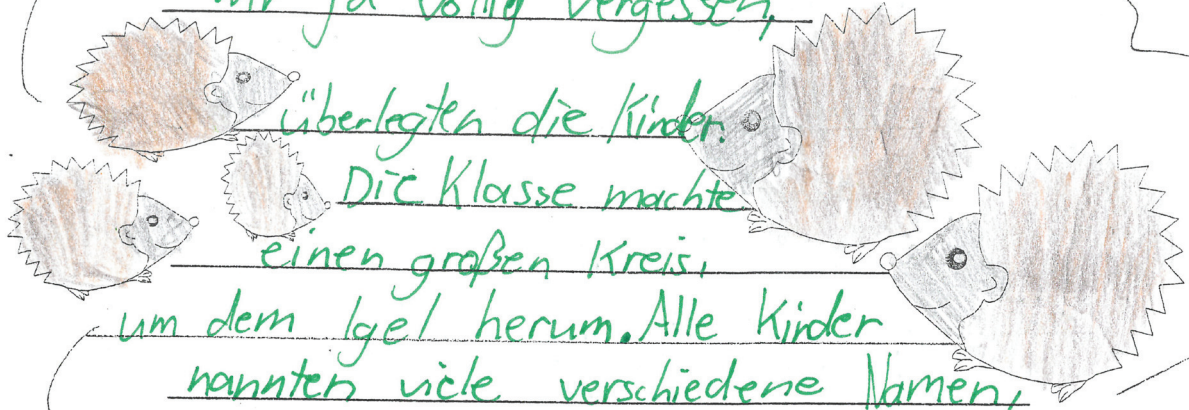 wir ja völlig vergessen,
überlegten die Kinder.
Die Klasse machte
einen großen Kreis,
um dem Igel herum. Alle Kinder
nannten viele verschiedene Namen,